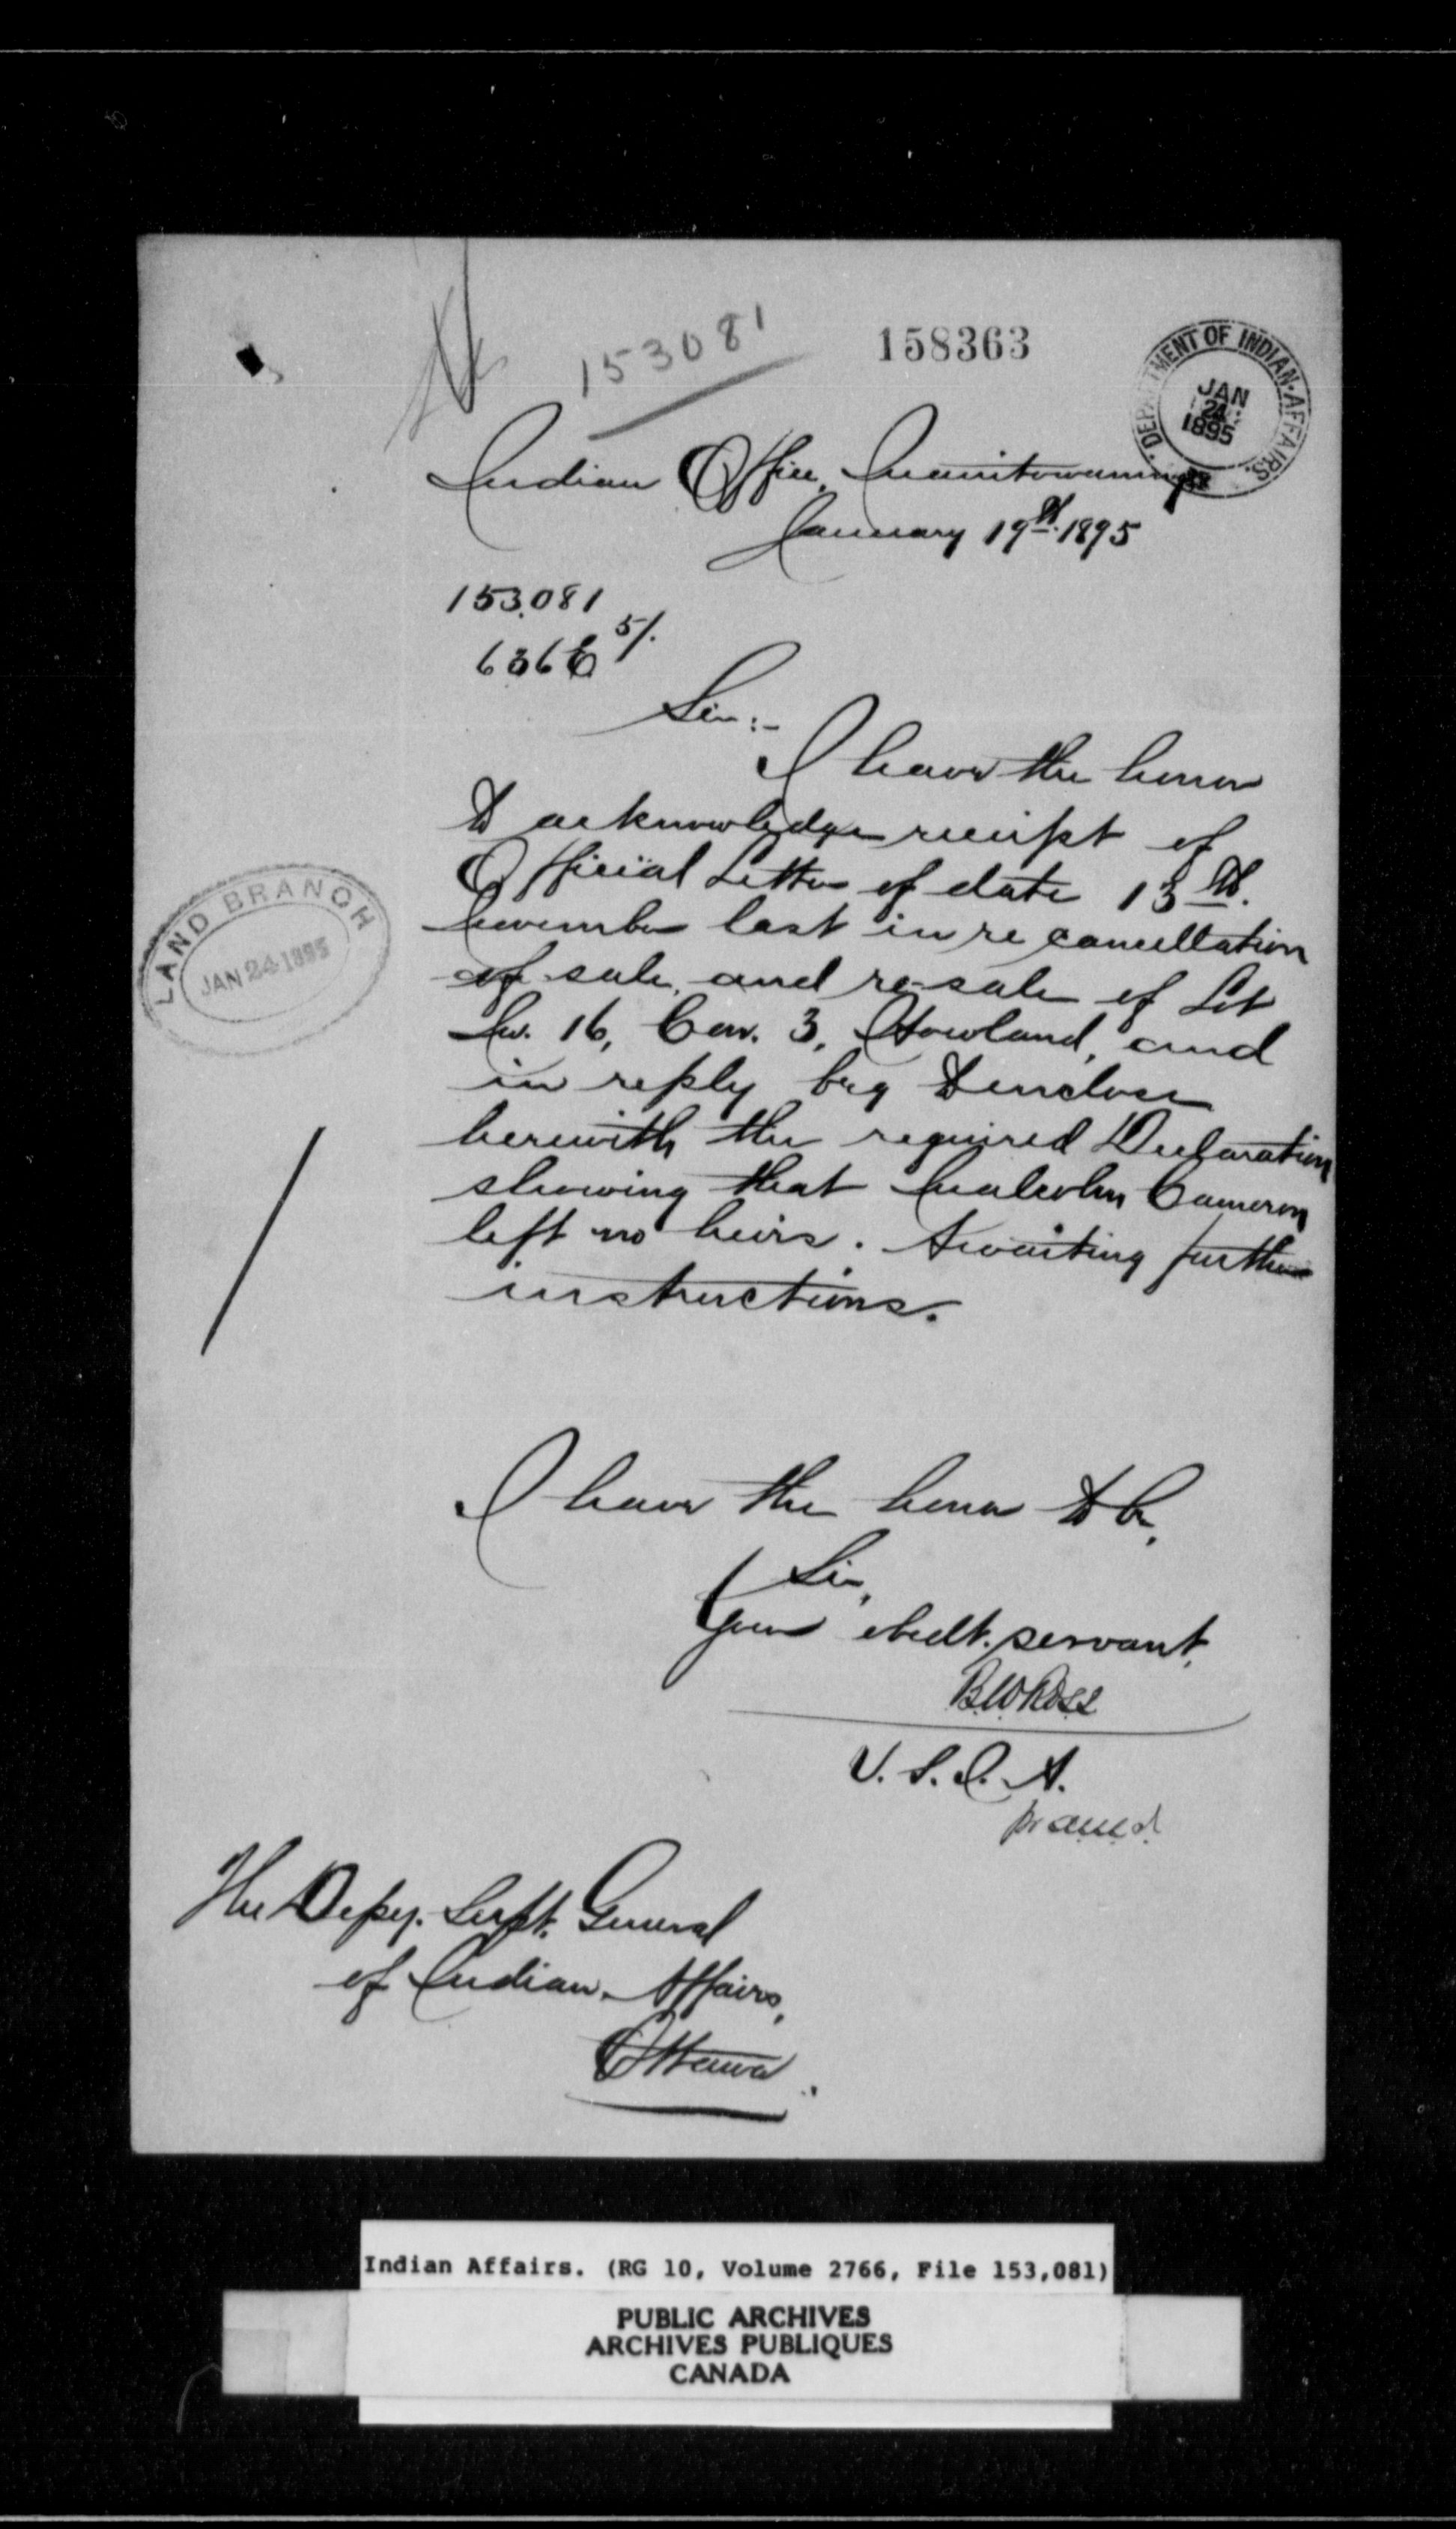 153081
158363
DEPARTMENT OF INDIAN AFFAIRS.
JAN
24
1895
Indian Office, Manitowaning
January 19th 1895
153,081
636 5/.
Sir:-
I have the honor
to acknowledge receipt of
Official Letter of date 13th.
November last in re cancellation
of sale, and re-sale of Lot
No. 16, Con. 3, Howland, and
in reply beg to enclose
herewith the required Declaration
showing that Malcolm Cameron
left no heirs. Awaiting further
instructions.
LAND BRANCH
JAN 24 1895
I have the honor to be,
Sir,
Your obedt. servant,
B.W. Ross
V.S.I.A.
The Depy. Supt. General
of Indian Affairs,
Ottawa.
Indian Affairs. (RG 10, Volume 2766, File 153,081)
PUBLIC ARCHIVES
ARCHIVES PUBLIQUES
CANADA